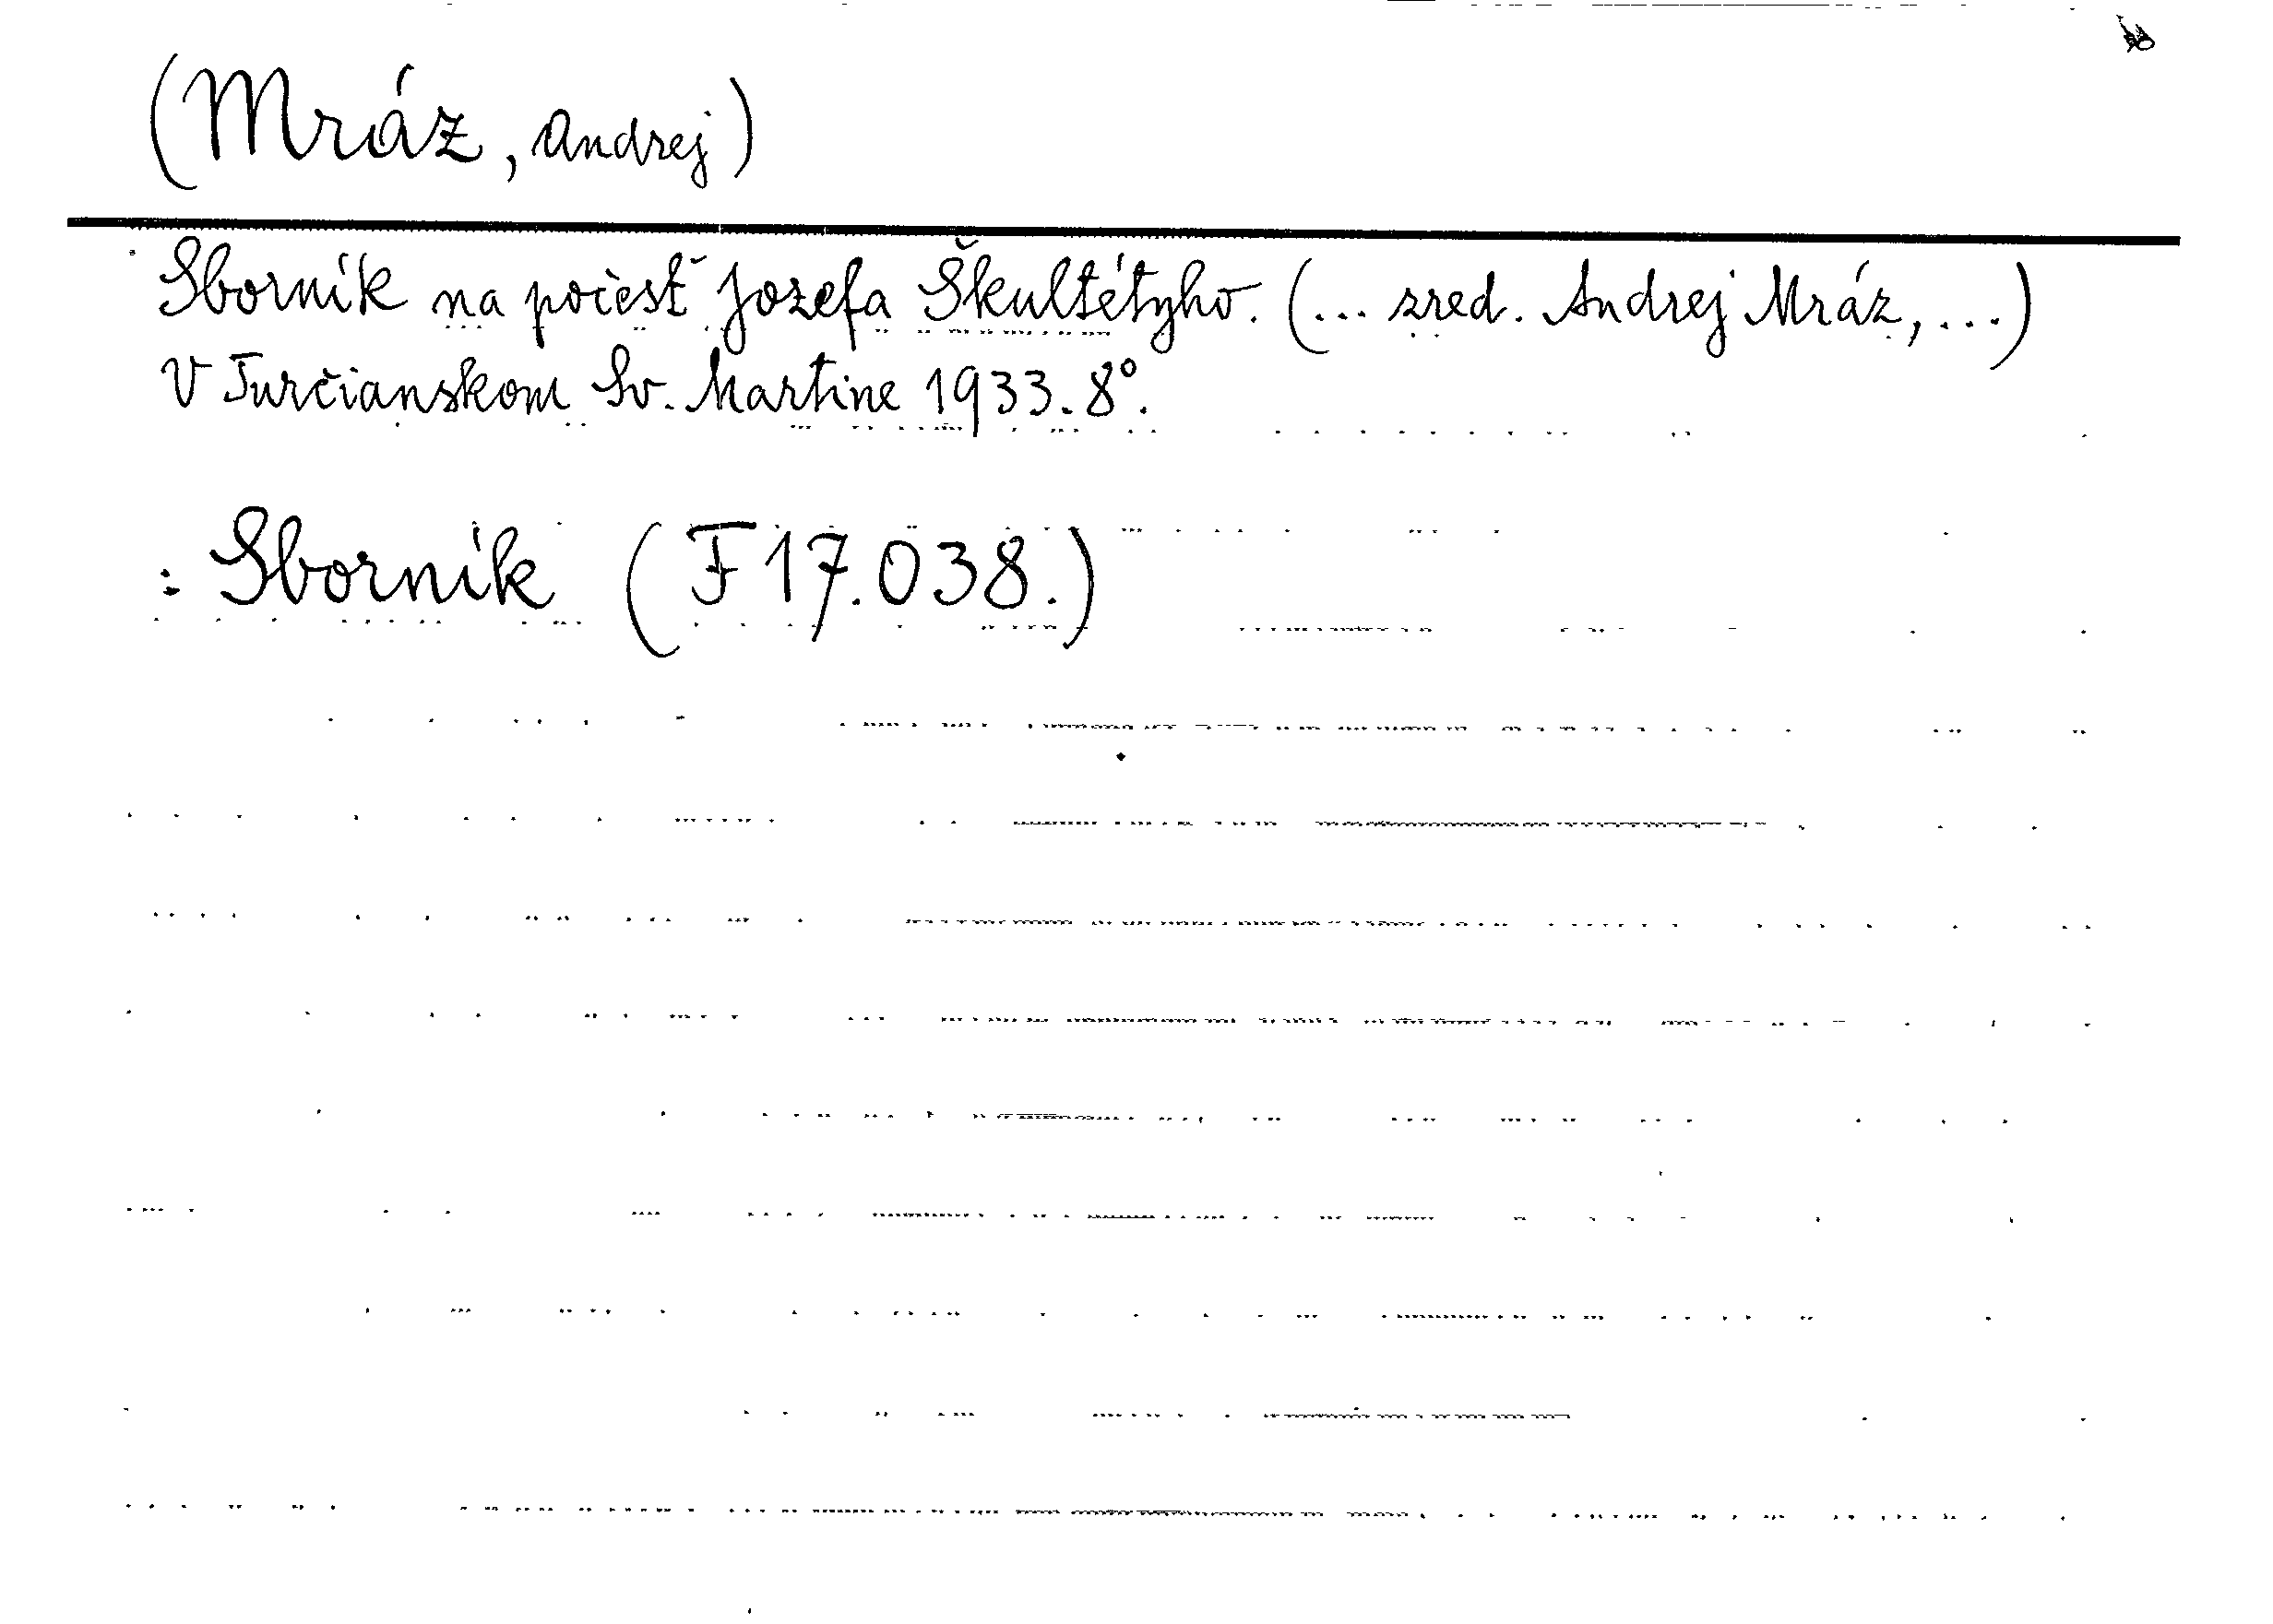 (Mráz, Andrej)
Sborník na počesť Jozefa Škultétyho. (... zred. Andrej Mráz, ...)
V Turčianskom Sv. Martine 1933. 8°.
: Sborník (F 17.038.)